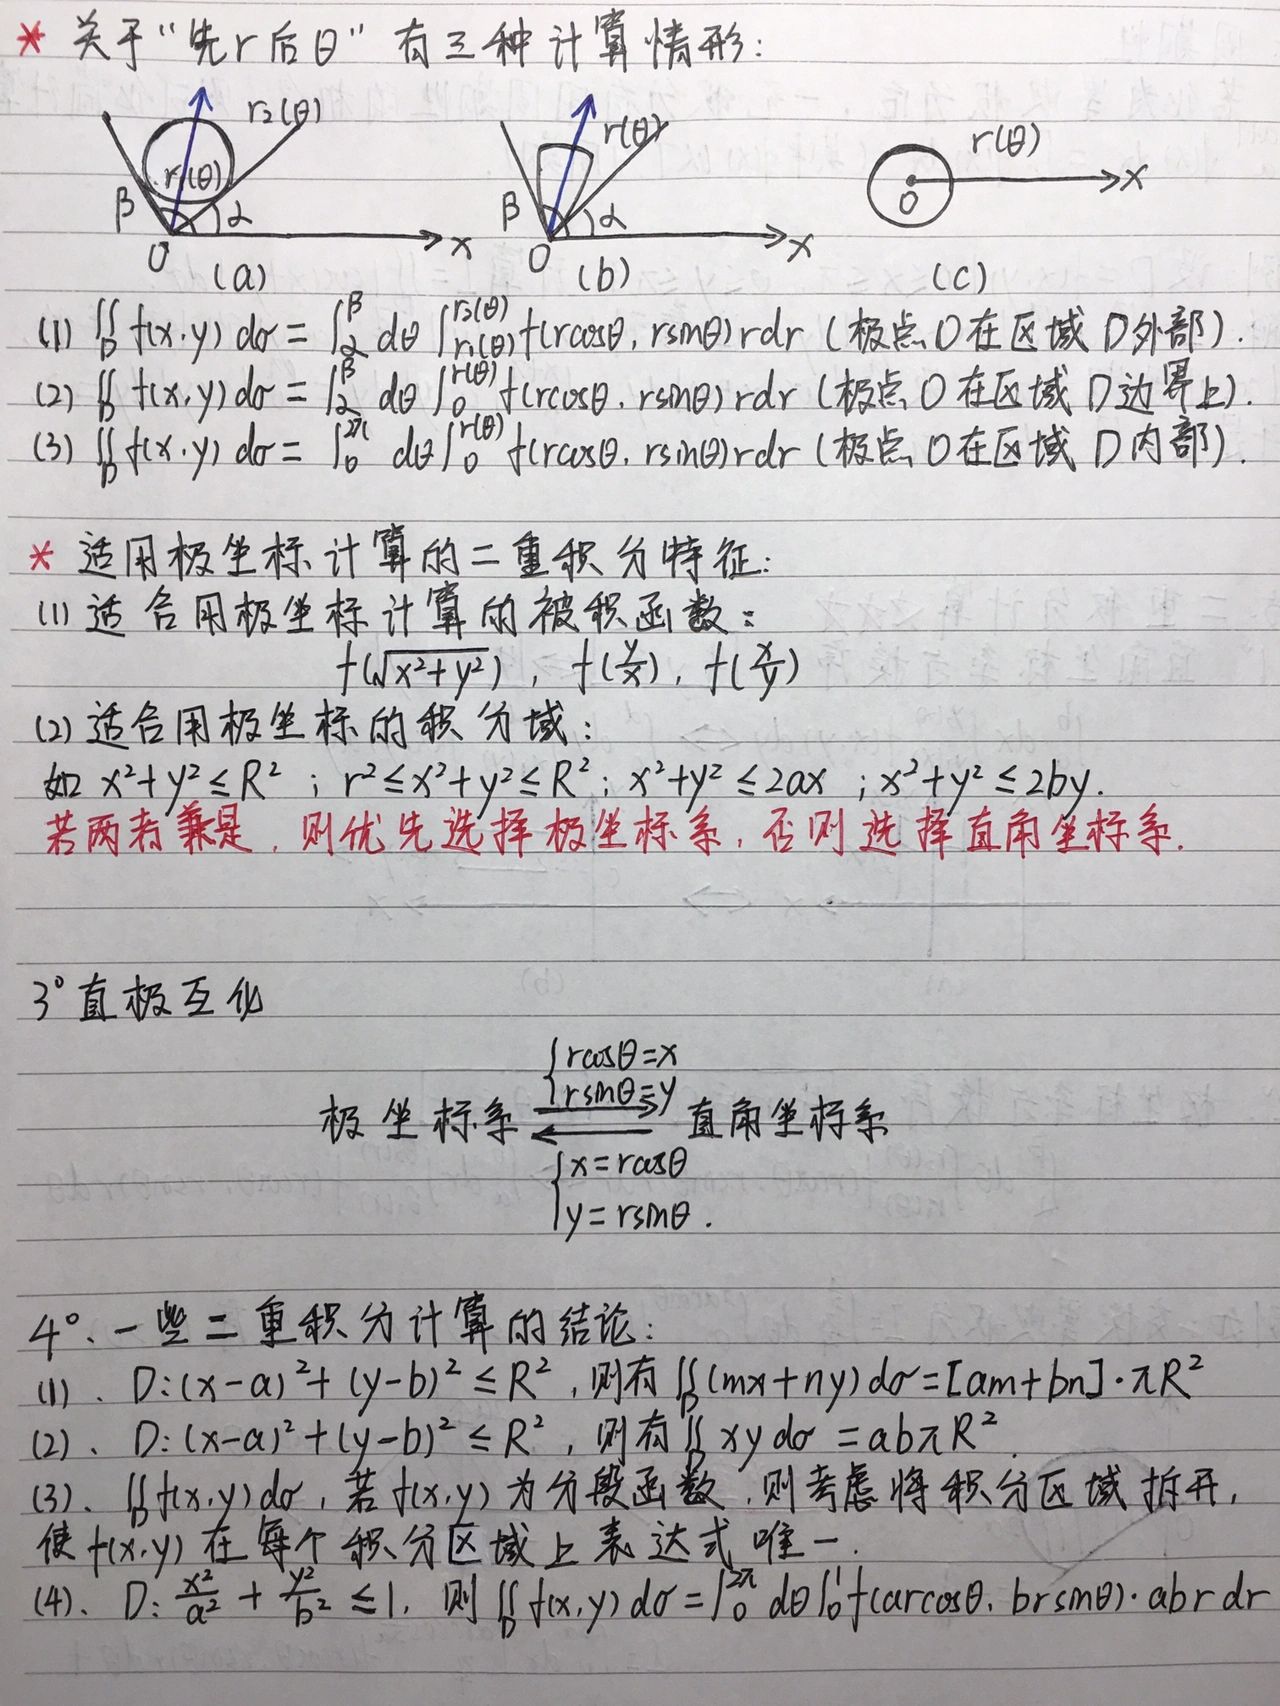 * 关于“先r后θ”有三种计算情形:
r₂(θ) r₁(θ) β α O x (a)
r(θ) β α O x (b)
r(θ) O x (c)
(1) ∬_D f(x,y) dσ = ∫_α^β dθ ∫_{r₁(θ)}^{r₂(θ)} f(rcosθ, rsinθ) rdr (极点O在区域D外部).
(2) ∬_D f(x,y) dσ = ∫_α^β dθ ∫_0^{r(θ)} f(rcosθ, rsinθ) rdr (极点O在区域D边界上).
(3) ∬_D f(x,y) dσ = ∫_0^{2π} dθ ∫_0^{r(θ)} f(rcosθ, rsinθ) rdr (极点O在区域D内部).
* 适用极坐标计算的二重积分特征:
(1) 适合用极坐标计算的被积函数:
f(√(x²+y²)), f(y/x), f(x/y)
(2) 适合用极坐标的积分域:
如 x²+y²≤R² ; r²≤x²+y²≤R² ; x²+y²≤2ax ; x²+y²≤2by.
若两者兼是, 则优先选择极坐标系, 否则选择直角坐标系.
3° 直极互化
{rcosθ=x
rsinθ=y
极坐标系 ⇄ 直角坐标系
{x=rcosθ
y=rsinθ.
4°、一些二重积分计算的结论:
(1)、D:(x-a)²+(y-b)²≤R², 则有∬_D (mx+ny) dσ=[am+bn]·πR²
(2)、D:(x-a)²+(y-b)²≤R², 则有∬_D xy dσ = abπR².
(3)、∬_D f(x,y) dσ, 若f(x,y)为分段函数, 则考虑将积分区域拆开,
使f(x,y)在每个积分区域上表达式唯一.
(4)、D: x²/a² + y²/b² ≤1, 则∬_D f(x,y) dσ=∫_0^{2π} dθ ∫_0^1 f(arcosθ, brsinθ)·abr dr